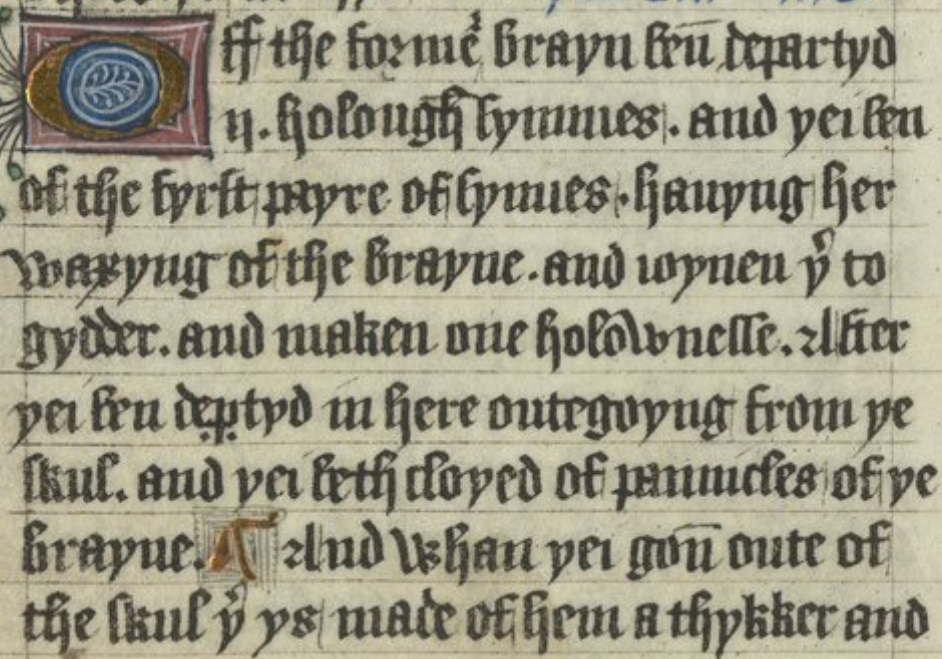 Off the formeʾ brayn ben̄ departyd
ij. holough synnues. and yei ben
of the fyrst payre of synues. hauyng her
waxyng of the brayne. and ioynen yͬ to
gydder. and maken one holownesse. After
yei ben deꝑtyd in here outegoyng from ye
skul. and yei beth cloyed of pannicles of ye
brayne. A And whan yei gon̄ oute of
the skul yͬ ys made of hem a thykker and